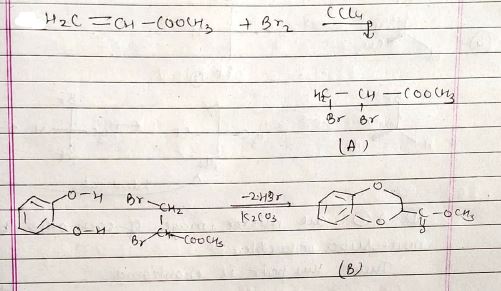 H₂C = CH – COOCH₃ + Br₂ CCl₄
H₂C – CH – COOCH₃
Br Br
(A)
O–H Br CH₂ –2HBr O
O–H Br CH COOCH₃ K₂CO₃ O C – OCH₃
O
(B)